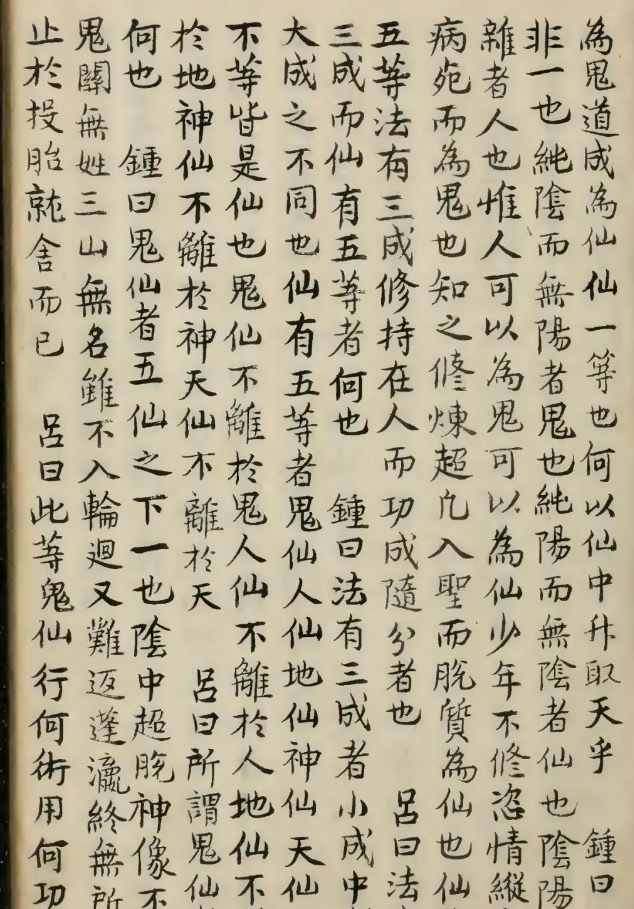 為鬼道成為仙仙一等也何以仙中升取天乎　鍾曰
非一也純陰而無陽者鬼也純陽而無陰者仙也陰陽
雜者人也惟人可以為鬼可以為仙少年不修恣情縱
病死而為鬼也知之修煉超凡入聖而脫質為仙也仙
五等法有三成修持在人而功成隨分者也　呂曰法
三成而仙有五等者何也　鍾曰法有三成者小成中
大成之不同也仙有五等者鬼仙人仙地仙神仙天仙
不等皆是仙也鬼仙不離於鬼人仙不離於人地仙不
於地神仙不離於神天仙不離於天　呂曰所謂鬼仙
何也　鍾曰鬼仙者五仙之下一也陰中超脫神像不
鬼關無姓三山無名雖不入輪迴又難返蓬瀛終無所
止於投胎就舍而已　呂曰此等鬼仙行何術用何功